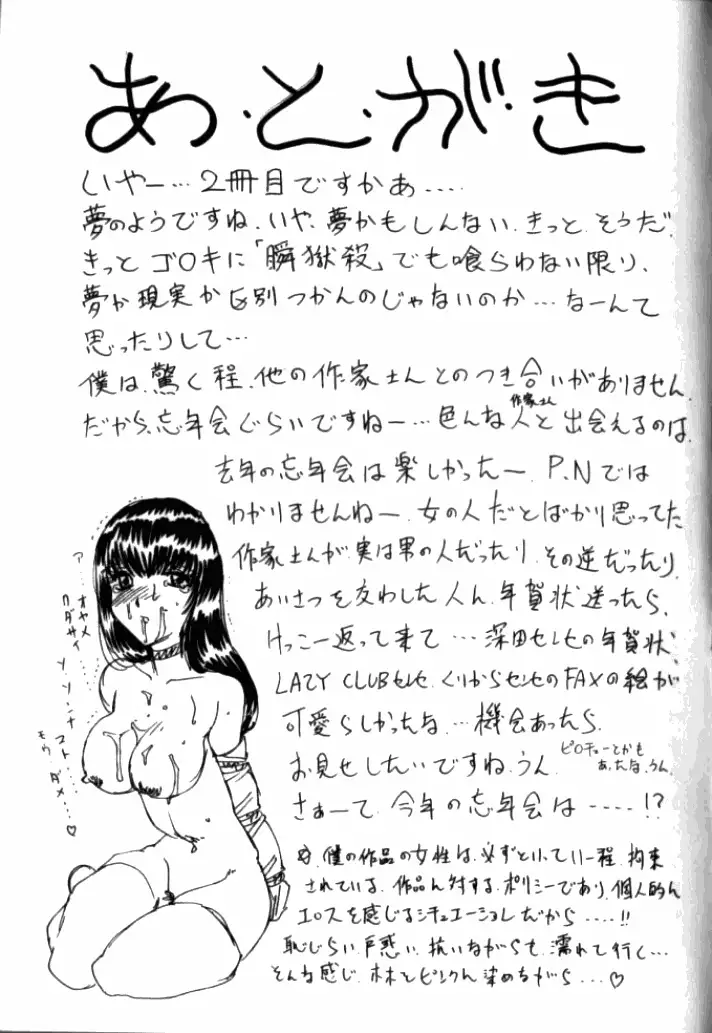 あ・と・が・き
いやー…2冊目ですかあ....
夢のようですね.いや、夢かもしんない.きっと.そうだ.
きっと ゴロキに「瞬獄殺」でも喰らわない限り、
夢か現実か区別つかんのじゃないのか…なーんて
思ったりして…
僕は、驚く程、他の作家さんとのつき合いがありません.
だから、忘年会ぐらいですねー…色んな人と出会えるのは.
作家さん
去年の忘年会は楽しかったー.P.Nでは
わかりませんねー.女の人だとばかり思ってた
作家さんが、実は男の人だったり、その逆だったり.
あいさつを交わした人に、年賀状送ったら、
けっこー返って来て…深田センセの年賀状、
LAZY CLUBセンセ、くりからセンセのFAXの絵が
可愛らしかったな…機会あったら、
お見せしたいですね.うん.
ピロチューとかも
あったな、うん.
さぁーて、今年の忘年会は----!?
ア…オヤメ
クダサイ…
ソ、ソンナ
コト……
モウ…ダメ…♡
僕の作品の女性は、必ずといっていい程、拘束
されている、作品に対する、ポリシーであり、個人的に
エロスを感じるシチュエーションだから....!!
恥じらい、戸惑い、抗いながらも、濡れて行く…
そんな感じ、ホホをピンクに染めながら…♡